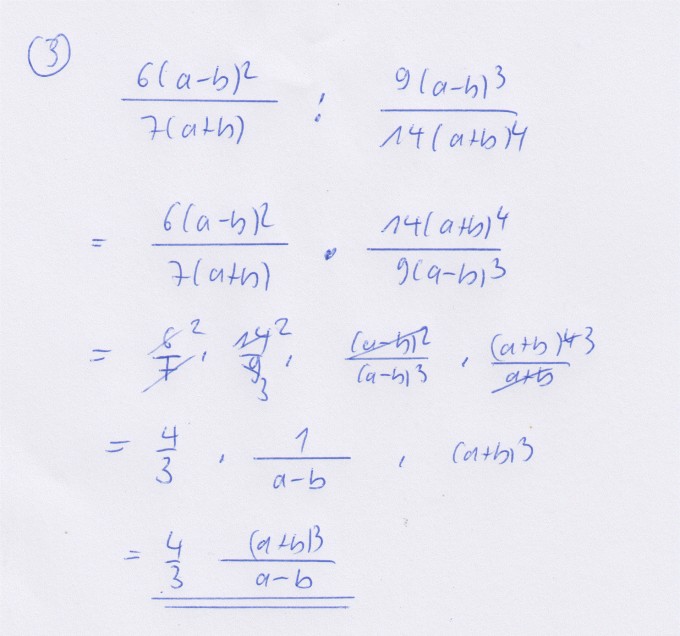 ③
6(a-b)² / 7(a+b) : 9(a-b)³ / 14(a+b)⁴
= 6(a-b)² / 7(a+b) · 14(a+b)⁴ / 9(a-b)³
= 6 2 / 7 · 14 2 / 9 3 · (a-b)² / (a-b)³ · (a+b)⁴ 3 / a+b
= 4/3 · 1 / a-b · (a+b)³
= 4/3 (a+b)³ / a-b